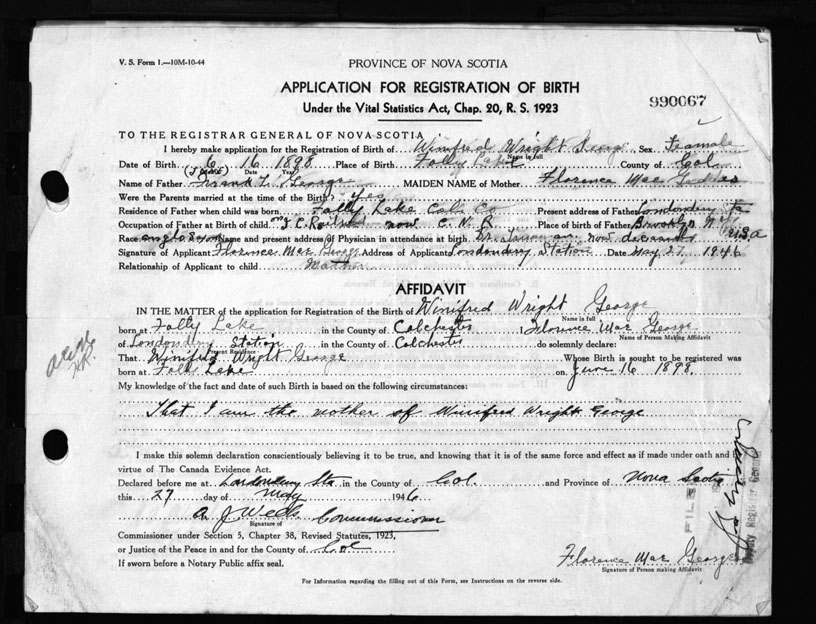 V. S. Form 1.—10M-10-44
PROVINCE OF NOVA SCOTIA
APPLICATION FOR REGISTRATION OF BIRTH
Under the Vital Statistics Act, Chap. 20, R. S. 1923
990067
TO THE REGISTRAR GENERAL OF NOVA SCOTIA
I hereby make application for the Registration of Birth of Winifred Wright George Sex Female
Name in full
Date of Birth 6 16 1898 Place of Birth Folly Lake County of Col.
(June) Day Year
Name of Father Frank L. George MAIDEN NAME of Mother Florence Mae
Were the Parents married at the time of the Birth? Yes
Residence of Father when child was born Folly Lake Col. Co Present address of Father Londonderry Sta
Occupation of Father at Birth of child on I. C. R. now C. N. R. Place of Birth of Father Brooklyn N.Y. U.S.A
Race Anglo Saxon Name and present address of Physician in attendance at birth Dr. now deceased
Signature of Applicant Florence Mae George Address of Applicant Londonderry Station Date May 27 1946
Relationship of Applicant to child Mother
AFFIDAVIT
IN THE MATTER of the application for Registration of the Birth of Winifred Wright George
Name in full
born at Folly Lake in the County of Colchester I Florence Mae George
Name of Person Making Affidavit
of Londonderry Station in the County of Colchester do solemnly declare:
Present Residence
That Winifred Wright George Whose Birth is sought to be registered was
born at Foll Lake on June 16 1898.
My knowledge of the fact and date of such Birth is based on the following circumstances:
That I am the mother of Winifred Wright George
I make this solemn declaration conscientiously believing it to be true, and knowing that it is of the same force and effect as if made under oath and by
virtue of The Canada Evidence Act.
Declared before me at Londonderry Sta in the County of Col. and Province of Nova Scotia
this 27 day of May 1946
A J Weeks Commissioner
Signature of
Commissioner under Section 5, Chapter 38, Revised Statutes, 1923,
or Justice of the Peace in and for the County of Col
If sworn before a Notary Public affix seal.
Florence Mae George
Signature of Person making Affidavit
For Information regarding the filling out of this Form, see Instructions on the reverse side.
FILED
Deputy Registrar General